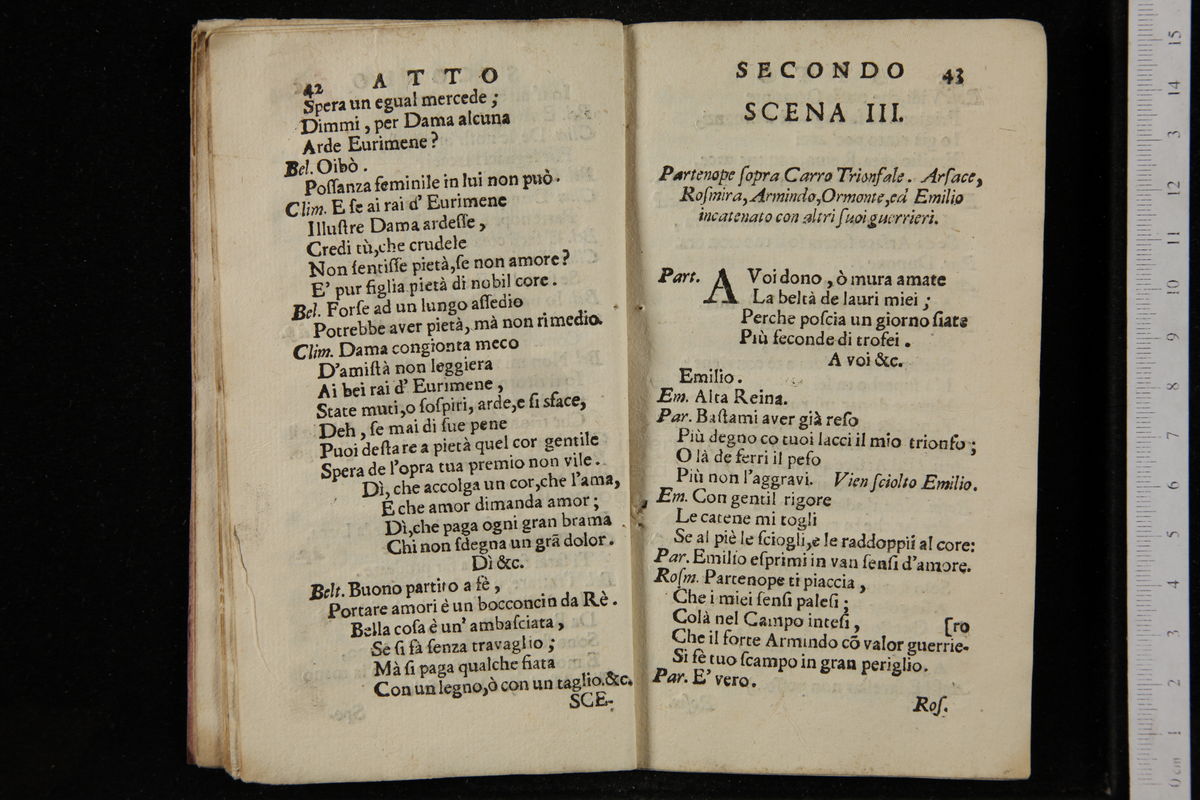 42 ATTO
Spera un egual mercede ;
Dimmi , per Dama alcuna
Arde Eurimene ?
Bel. Oibò .
Poſſanza feminile in lui non può .
Clim. E ſe ai rai d' Eurimene
Illuſtre Dama ardeſſe ,
Credi tù,che crudele
Non ſentiſſe pietà,ſe non amore ?
E' pur figlia pietà di nobil core .
Bel. Forſe ad un lungo aſſedio
Potrebbe aver pietà, mà non rimedio.
Clim. Dama congionta meco
D'amiſtà non leggiera
Ai bei rai d' Eurimene ,
State muti,o ſoſpiri, arde,e ſi sface,
Deh , ſe mai di ſue pene
Puoi deſtare a pietà quel cor gentile
Spera de l'opra tua premio non vile .
Dì, che accolga un cor,che l'ama,
E che amor dimanda amor ;
Dì,che paga ogni gran brama
Chi non ſdegna un grã dolor .
Dì &c.
Belt. Buono partito a fè ,
Portare amori è un bocconcin da Rè .
Bella coſa è un' ambaſciata ,
Se ſi fà ſenza travaglio ;
Mà ſi paga qualche fiata
Con un legno,ò con un taglio.&c.
SCE-
SECONDO 43
SCENA III.
Partenope ſopra Carro Trionfale . Arſace,
Roſmira, Armindo,Ormonte,ed Emilio
incatenato con altri ſuoi guerrieri.
Part. A Voi dono , ò mura amate
La beltà de lauri miei ;
Perche poſcia un giorno ſiate
Più feconde di trofei .
A voi &c.
Emilio .
Em. Alta Reina.
Par. Baſtami aver già reſo
Più degno co tuoi lacci il mio trionfo ;
O là de ferri il peſo
Più non l'aggravi. Vien ſciolto Emilio.
Em. Con gentil rigore
Le catene mi togli
Se al piè le ſciogli,e le raddoppii al core:
Par. Emilio eſprimi in van ſenſi d'amore.
Roſm. Partenope ti piaccia ,
Che i miei ſenſi paleſi ;
Colà nel Campo inteſi , [ro
Che il forte Armindo cõ valor guerrie-
Si fè tuo ſcampo in gran periglio .
Par. E' vero .
Roſ.